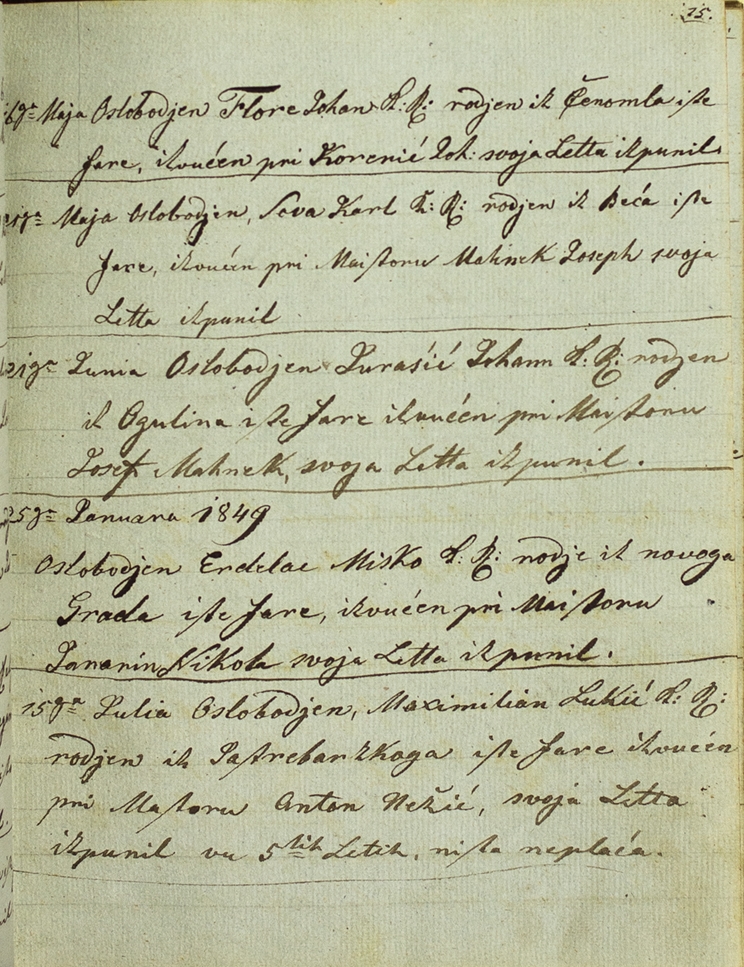 15.
16ga Maja Oslobodjen Flore Johan K: R: rodjen iz Čenomla iste
fare, izvučen pri Korenić Joh: svoja Letta izpunil.
Maja Oslobodjen, Sova Karl K: R: rodjen iz Beća iste
fare, izvučen pri Maistoru Mahnek Joseph svoja
Letta izpunil
21ga Junia Oslobodjen Jurašić Johann K: R: rodjen
iz Ogulina iste fare izvučen pri Maistoru
Josef Mahnek, svoja Letta izpunil.
25ga Januara 1849
Oslobodjen Erdelac Misko K: R: rodje iz novoga
Grada iste fare, izvučen pri Maistoru
Nikola svoja Letta izpunil.
15ga Julia Oslobodjen, Maximilian Lukić K: R:
rodjen iz Jastrebarzkoga iste fare izvučen
pri Mastoru Anton Nežić, svoja Letta
izpunil vu 5tih Letih, nista neplaća.